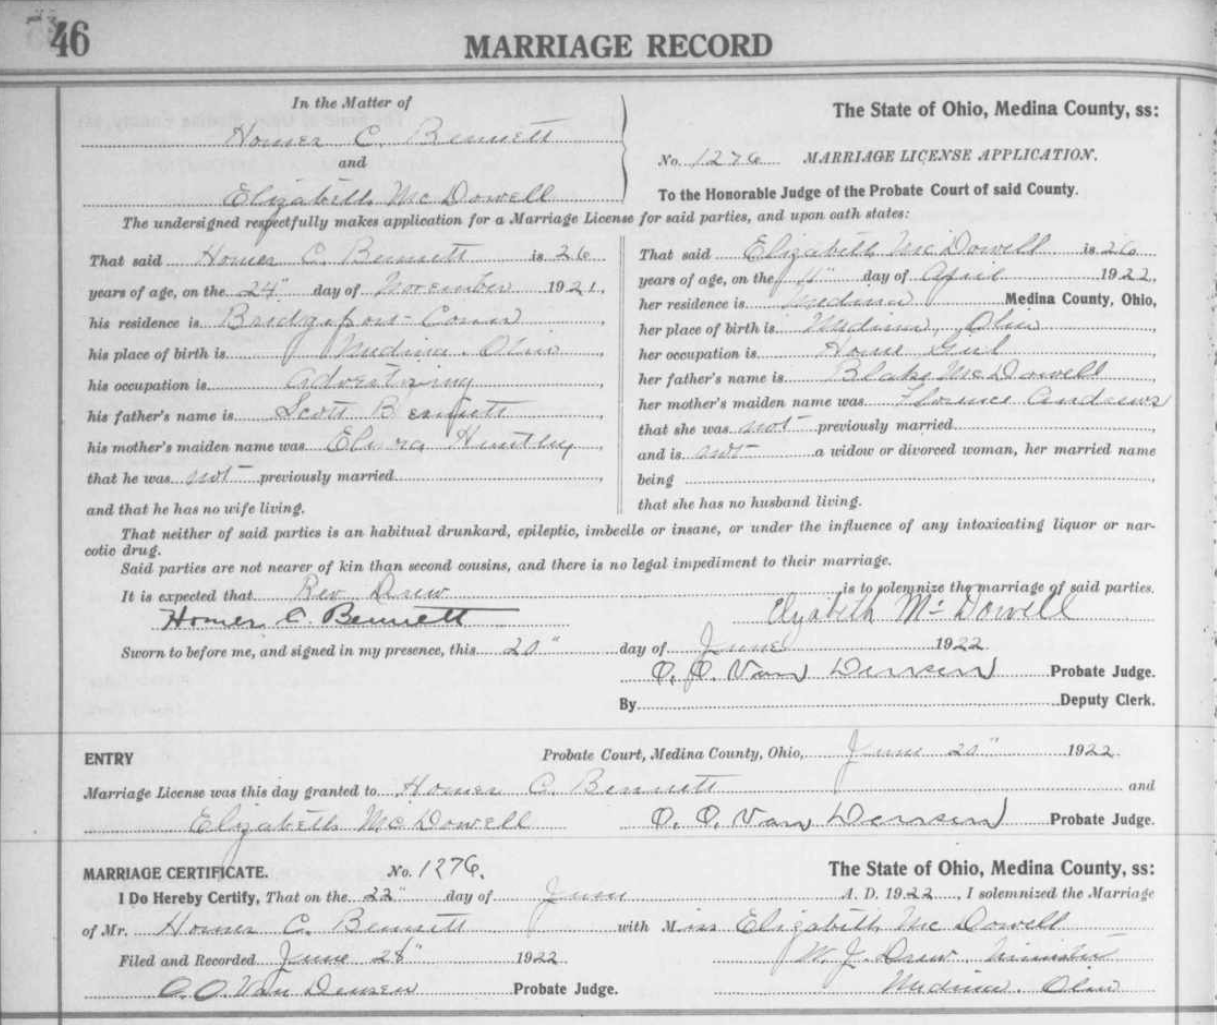 46
MARRIAGE RECORD
In the Matter of
Homer C. Bennett
and
Elizabeth McDowell
The State of Ohio, Medina County, ss:
No. 1276 MARRIAGE LICENSE APPLICATION.
To the Honorable Judge of the Probate Court of said County.
The undersigned respectfully makes application for a Marriage License for said parties, and upon oath states:
That said Homer C. Bennett is 26
years of age, on the 24" day of November 1921,
his residence is Bridgeport Conn,
his place of birth is Medina, Ohio,
his occupation is Advertising,
his father's name is Scott Bennett,
his mother's maiden name was Huntley,
that he was not previously married,
and that he has no wife living.
That said Elizabeth McDowell is 26
years of age, on the day of April 1922,
her residence is Medina Medina County, Ohio,
her place of birth is Medina, Ohio,
her occupation is Home Girl,
her father's name is Blake McDowell,
her mother's maiden name was Florence Andrews
that she was not previously married,
and is not a widow or divorced woman, her married name
being
that she has no husband living.
That neither of said parties is an habitual drunkard, epileptic, imbecile or insane, or under the influence of any intoxicating liquor or nar-
cotic drug.
Said parties are not nearer of kin than second cousins, and there is no legal impediment to their marriage.
It is expected that Rev Drew is to solemnize the marriage of said parties.
Homer C. Bennett Elizabeth McDowell
Sworn to before me, and signed in my presence, this 20" day of June 1922
O. O. Van Deusen Probate Judge.
By Deputy Clerk.
ENTRY Probate Court, Medina County, Ohio, June 20" 1922.
Marriage License was this day granted to Homer C. Bennett and
Elizabeth McDowell O. O. Van Deusen Probate Judge.
MARRIAGE CERTIFICATE. No. 1276. The State of Ohio, Medina County, ss:
I Do Hereby Certify, That on the 22" day of June A. D. 1922, I solemnized the Marriage
of Mr. Homer C. Bennett with Miss Elizabeth McDowell
Filed and Recorded June 28" 1922. W. J. Drew, Minister
O. O. Van Deusen Probate Judge. Medina, Ohio